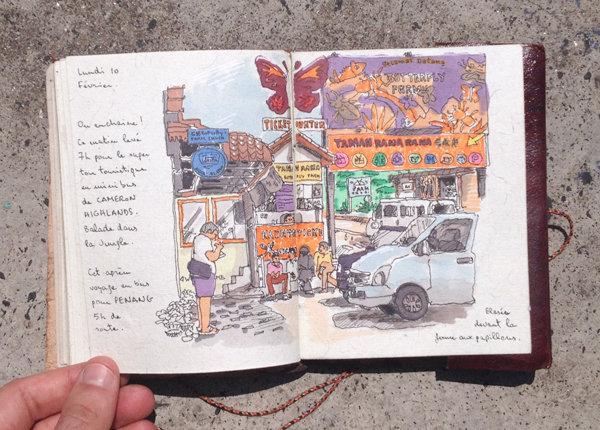 Lundi 10
Février.
On enchaîne!
Ce matin levé
7h pour le super
tour touristique
en minibus
de CAMERON
HIGHLANDS.
Balade dans
la Jungle.
Cet aprèm
voyage en bus
pour PENANG
5h de
route.
TICKET COUNTER
Selamat Datang
BUTTERFLY
FARM
TAMAN RAMA RAMA
TAMAN
RAMA RAMA
devant la
ferme aux papillons.